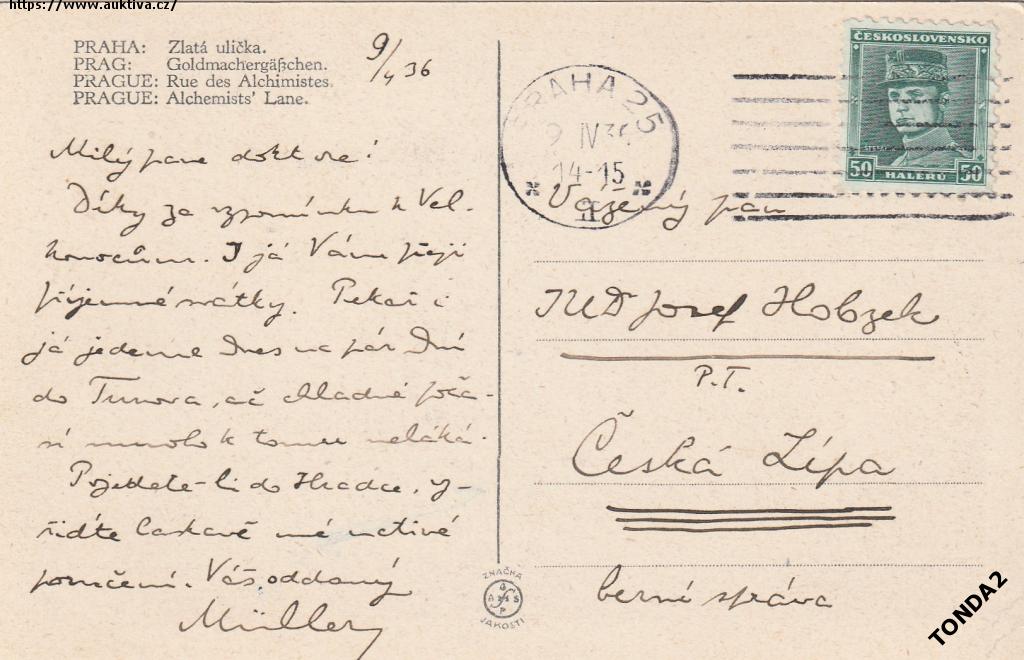 https://www.auktiva.cz/
PRAHA: Zlatá ulička.
PRAG: Goldmachergäßchen.
PRAGUE: Rue des Alchimistes.
PRAGUE: Alchemists' Lane.
9/4 36
Milý pane doktore!
Díky za vzpomínku k Vel-
konocům. I já Vám přeji
příjemné svátky. Pekař i
já jedeme dnes na pár dní
do Turnova, ač chladné poča-
sí mnoho k tomu neláká.
Pojedete-li do Hradce, vy-
řiďte laskavě mé uctivé
poručení. Váš oddaný
Müller
PRAHA 25
9 IV 36
14-15
ČESKOSLOVENSKO
50 HALÉŘŮ 50
Vážený pan
JUDr Josef Hobzek
P.T.
Česká Lípa
berní správa
ZNAČKA
JAKOSTI
TONDA2